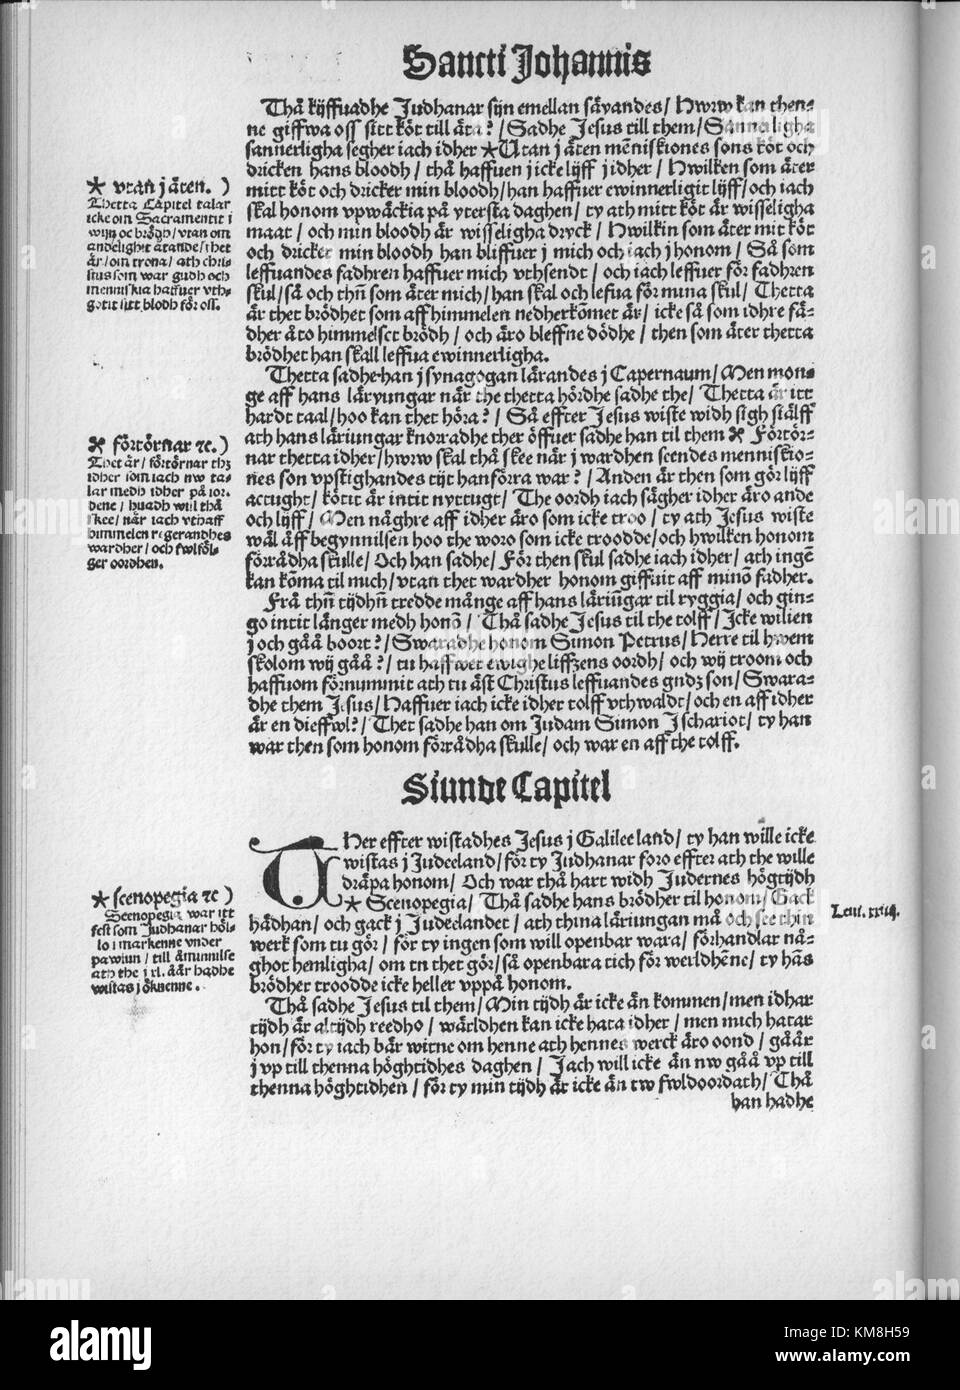 Sancti Johannis
Thå kijffuadhe Judhanar sijn emellan säyandes / Hwrw kan then-
ne giffwa oss sitt köt till äta? / Sadhe Jesus till them / Sannerligha
sannerligha segher iach idher * Utan j äten mēniskiones sons köt och
dricken hans bloodh / thå haffuen j icke lijff j idher / Hwilken som äter
mitt köt och dricker min bloodh / han haffuer ewinnerligit lijff / och iach
skal honom vpwäckia på ytersta daghen / ty ath mitt köt är wisseligha
maat / och min bloodh är wisseligha dryck / Hwilkin som äter mit köt
och dricker min bloodh han bliffuer j mich och iach j honom / Så som
leffuandes fadhren haffuer mich vthsendt / och iach leffuer för fadhren
skul / så och thn̄ som äter mich / han skal och lefua för mina skul / Thetta
är thet brödhet som aff himmelen nedherkōmet är / icke så som idhre fä-
dher äto himmelsct brödh / och äro bleffne dödhe / then som äter thetta
brödhet han skall leffua ewinnerligha.
Thetta sadhe han j synagogan lärandes j Capernaum / Men mon-
ge aff hans läryungar når the thetta hördhe sadhe the / Thetta är itt
hardt taal / hoo kan thet höra? / Så effter Jesus wiste widh sigh siälff
ath hans läriungar knorradhe ther öffuer sadhe han til them * Förtör-
nar thetta idher / hwrw skal thå skee när j wardhen seendes menniskio-
nes son vpstighandes tijt hanförra war? / Anden är then som gör lijff
actught / kötit är intit nyttugt / The oordh iach sägher idher äro ande
och lijff / Men någhre aff idher äro som icke troo / ty ath Jesus wiste
wäl äff begynnilsen hoo the woro som icke troodde / och hwilken honom
förrådha skulle / Och han sadhe / För then skul sadhe iach idher / ath ingē
kan kōma til mich / vtan thet wardher honom giffuit aff minō fadher.
Frå thn̄ tijdhn̄ tredde månge aff hans läriūgar til ryggia / och gin-
go intit länger medh honō / Thå sadhe Jesus til the tolff / Icke wilien
j och gåå boort? / Swaradhe honom Simon Petrus / Herre til hwem
skolom wij gåå? / tu haffwer ewighe liffzens oordh / och wij troom och
haffuom förnummit ath tu äst Christus leffuandes gudz son / Swara-
dhe them Jesus / Haffuer iach icke idher tolff vthwaldt / och en aff idher
är en dieffwl? / Thet sadhe han om Judam Simon Ischariot / ty han
war then som honom förrådha skulle / och war en aff the tolff.
* vtan j äten. )
Thetta Capitel talar
icke om Sacramentit j
wijn oc brödh / vtan om
andelighit ätande / thet
är / om trona / ath chri-
stus som war gudh och
menniskia haffuer vth-
gotit sitt blodh för oss.
* förtörnar ⁊c. )
Thet är / förtörnar thz
idher som iach nw ta-
lar medh idher på ior-
dene / huadh will thå
skee / när iach vthaff
himmelen regerandhes
wardher / och fwlföl-
ger oordhen.
Siunde Capitel
Ther effter wistadhes Jesus j Galilee land / ty han wille icke
wistas j Judeeland / för ty Judhanar foro effter ath the wille
dräpa honom / Och war thå hart widh Judernes högtijdh
* Scenopegia / Thå sadhe hans brödher til honom / Gack
hädhan / och gack j Judeelandet / ath thina läriungan må och see thin
werk som tu gör / för ty ingen som will openbar wara / förhandlar nå-
ghot hemligha / om tn thet gör / så openbara tich för werldhēne / ty hās
brödher troodde icke heller vppå honom.
Thå sadhe Jesus til them / Min tijdh är icke än kommen / men idhar
tijdh är altijdh reedho / wärldhen kan icke hata idher / men mich hatar
hon / för ty iach bär witne om henne ath hennes werck äro oond / gåår
j vp till thenna höghtidhes daghen / Jach will icke än nw gåå vp till
thenna höghtidhen / för ty min tijdh är icke än tw fwldoordath / Thå
han hadhe
* scenopegia ⁊c )
Scenopegia war itt
fest som Judhanar höl-
lo i markenne vnder
pawiun / till åminnilse
ath the i xl. åår hadhe
wistas j öknenne.
Leui. xxiij.
alamy
KM8H59
www.alamy.com